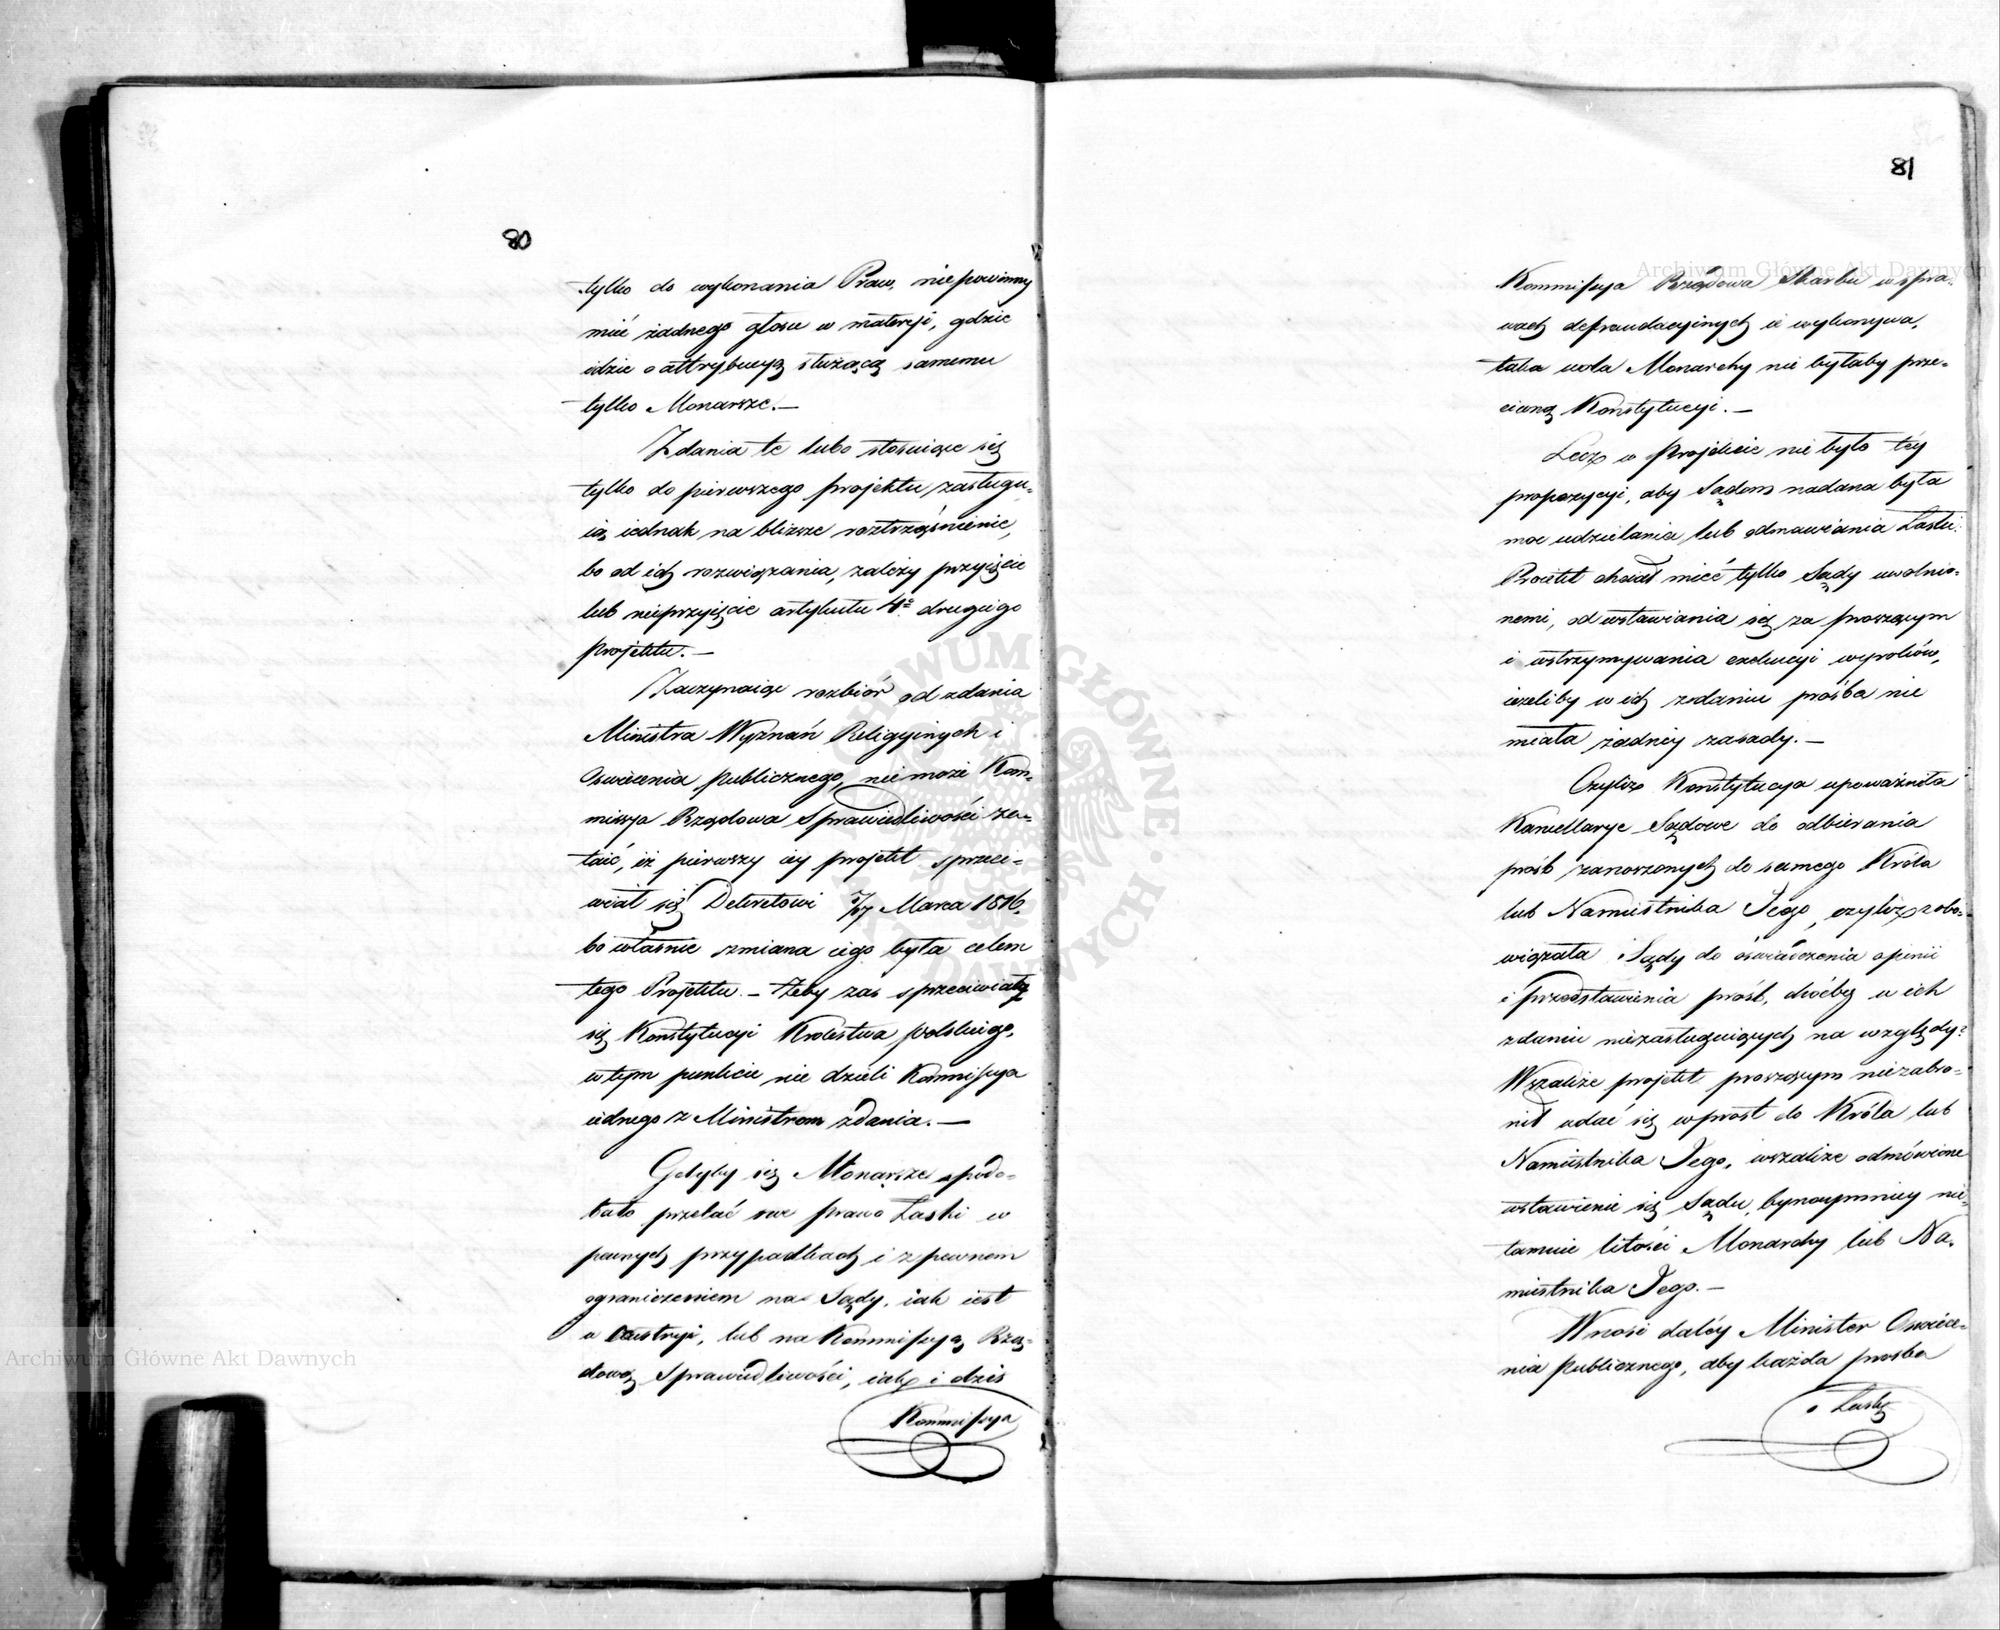 80
tylko do wykonania Praw, niepowinny
mieć żadnego głosu w materyi, gdzie
idzie o attrybucyą służącą samemu
tylko Monarsze.—
Zdania te lubo stosuiące się
tylko do pierwszego projektu zasługu-
ią iednak na bliższe roztrząśnienie,
bo od ich rozwiązania, zależy przyięcie
lub nieprzyięcie artykułu 4º drugiego
projektu.—
Zaczynaiąc rozbiór od zdania
Ministra Wyznań Religyinych i
Oswiecenia publicznego, nie może Kom-
missya Rządowa Sprawiedliwości za-
taić, iż pierwszy iey projekt sprzeci-
wiał się Dekretowi 5/17 Marca 1816,
bo właśnie zmiana iego była celem
tego Projektu.— Żeby zas sprzeciwiał
się Konstytucyi Krolestwa polskiego,
w tym punkcie nie dzieli Kommissya
iednego z Ministrem zdania.—
Gdyby się Monarsze podo-
bało przelać swe prawo Łaski w
pewnych przypadkach i z pewnem
ograniczeniem na Sądy, iak iest
w Austryi, lub na Kommissyą Rzą-
dową Sprawiedliwości, iak i dziś
Kommissya
81
Kommissya Rządowa Skarbu w spra-
wach defraudacyinych ie wykonywa,
taka wola Monarchy nie byłaby prze-
ciwną Konstytucyi.—
Lecz w Projekcie nie było téy
propozycyi, aby Sądom nadana była
moc udzielania lub odmawiania Łaski.
Proiekt chciał mieć tylko Sądy uwolnio-
nemi, od wstawiania się za proszącym
i wstrzymywania exekucyi wyroków,
ieżeliby w ich zdaniu prośba nie
miała żadnéy zasady.—
Czyliż Konstytucya upoważniła
Kancellarye Sądowe do odbierania
próśb zanoszonych do samego Króla
lub Namiestnika Jego, czyliż zobo-
wiązała Sądy do oświadczenia opinii
i przedstawienia próśb, choćby w ich
zdaniu niezasługuiących na względy?
Wszakże projekt proszącym niezabro-
nił udać się wprost do Króla lub
Namiestnika Jego, wszakże odmówione
wstawienie się Sądu, bynaymniey nie-
tamuie litości Monarchy lub Na-
miestnika Jego.—
Wnosi daléy Minister Oswiece-
nia Publicznego, aby każda prosba
o Łaskę
Archiwum Główne Akt Dawnych
Archiwum Główne Akt Dawnych
ARCHIWUM GŁÓWNE AKT DAWNYCH